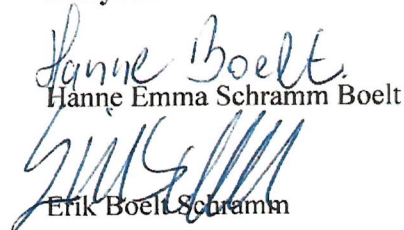 Hanne Boelt.
Hanne Emma Schramm Boelt
Erik Boelt Schramm